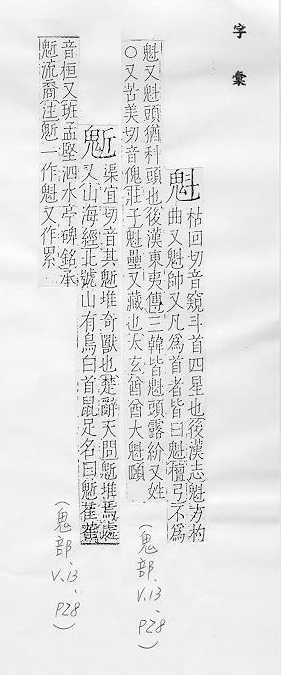 字彙
魁
枯回切音窺斗首四星也後漢志魁方杓
曲又魁帥又凡為首者皆曰魁檀弓不為
魁又魁頭猶科頭也後漢東夷傳三韓皆魁頭露紒又姓
○又苦美切音傀莊子魁壘又藏也太玄酋酋大魁頤
(鬼部. V.13. P28)
鬿
渠宜切音其鬿堆奇獸也楚辭天問鬿堆焉處
又山海經北號山有鳥白首鼠足名曰鬿萑舊
音桓又班孟堅泗水亭碑銘承
鬿流裔注鬿一作魁又作累
(鬼部. V.13. P28)